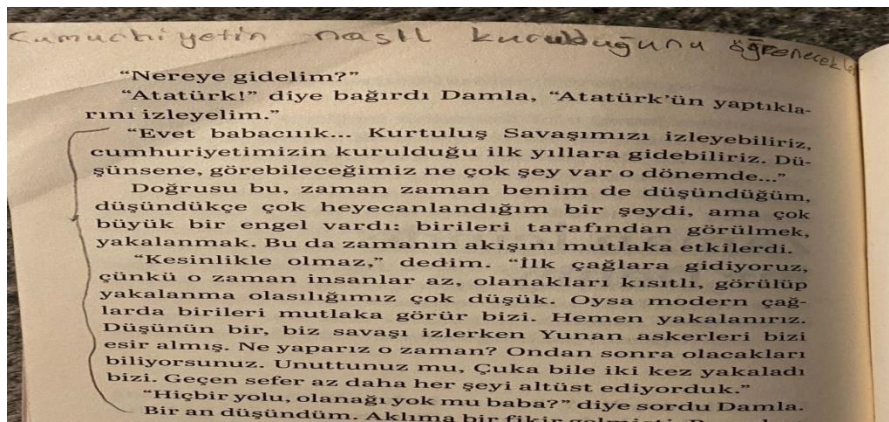 Cumuchiyetin nasıl kurulduğunu öğrenecekler
"Nereye gidelim?"
"Atatürk!" diye bağırdı Damla, "Atatürk'ün yaptıkla-
rını izleyelim."
"Evet babacıııık... Kurtuluş Savaşımızı izleyebiliriz,
cumhuriyetimizin kurulduğu ilk yıllara gidebiliriz. Dü-
şünsene, görebileceğimiz ne çok şey var o dönemde..."
Doğrusu bu, zaman zaman benim de düşündüğüm,
düşündükçe çok heyecanlandığım bir şeydi, ama çok
büyük bir engel vardı: birileri tarafından görülmek,
yakalanmak. Bu da zamanın akışını mutlaka etkilerdi.
"Kesinlikle olmaz," dedim. "İlk çağlara gidiyoruz,
çünkü o zaman insanlar az, olanakları kısıtlı, görülüp
yakalanma olasılığımız çok düşük. Oysa modern çağ-
larda birileri mutlaka görür bizi. Hemen yakalanırız.
Düşünün bir, biz savaşı izlerken Yunan askerleri bizi
esir almış. Ne yaparız o zaman? Ondan sonra olacakları
biliyorsunuz. Unuttunuz mu, Çuka bile iki kez yakaladı
bizi. Geçen sefer az daha her şeyi altüst ediyorduk."
"Hiçbir yolu, olanağı yok mu baba?" diye sordu Damla.
Bir an düşündüm. Aklıma bir fikir gelmişti.